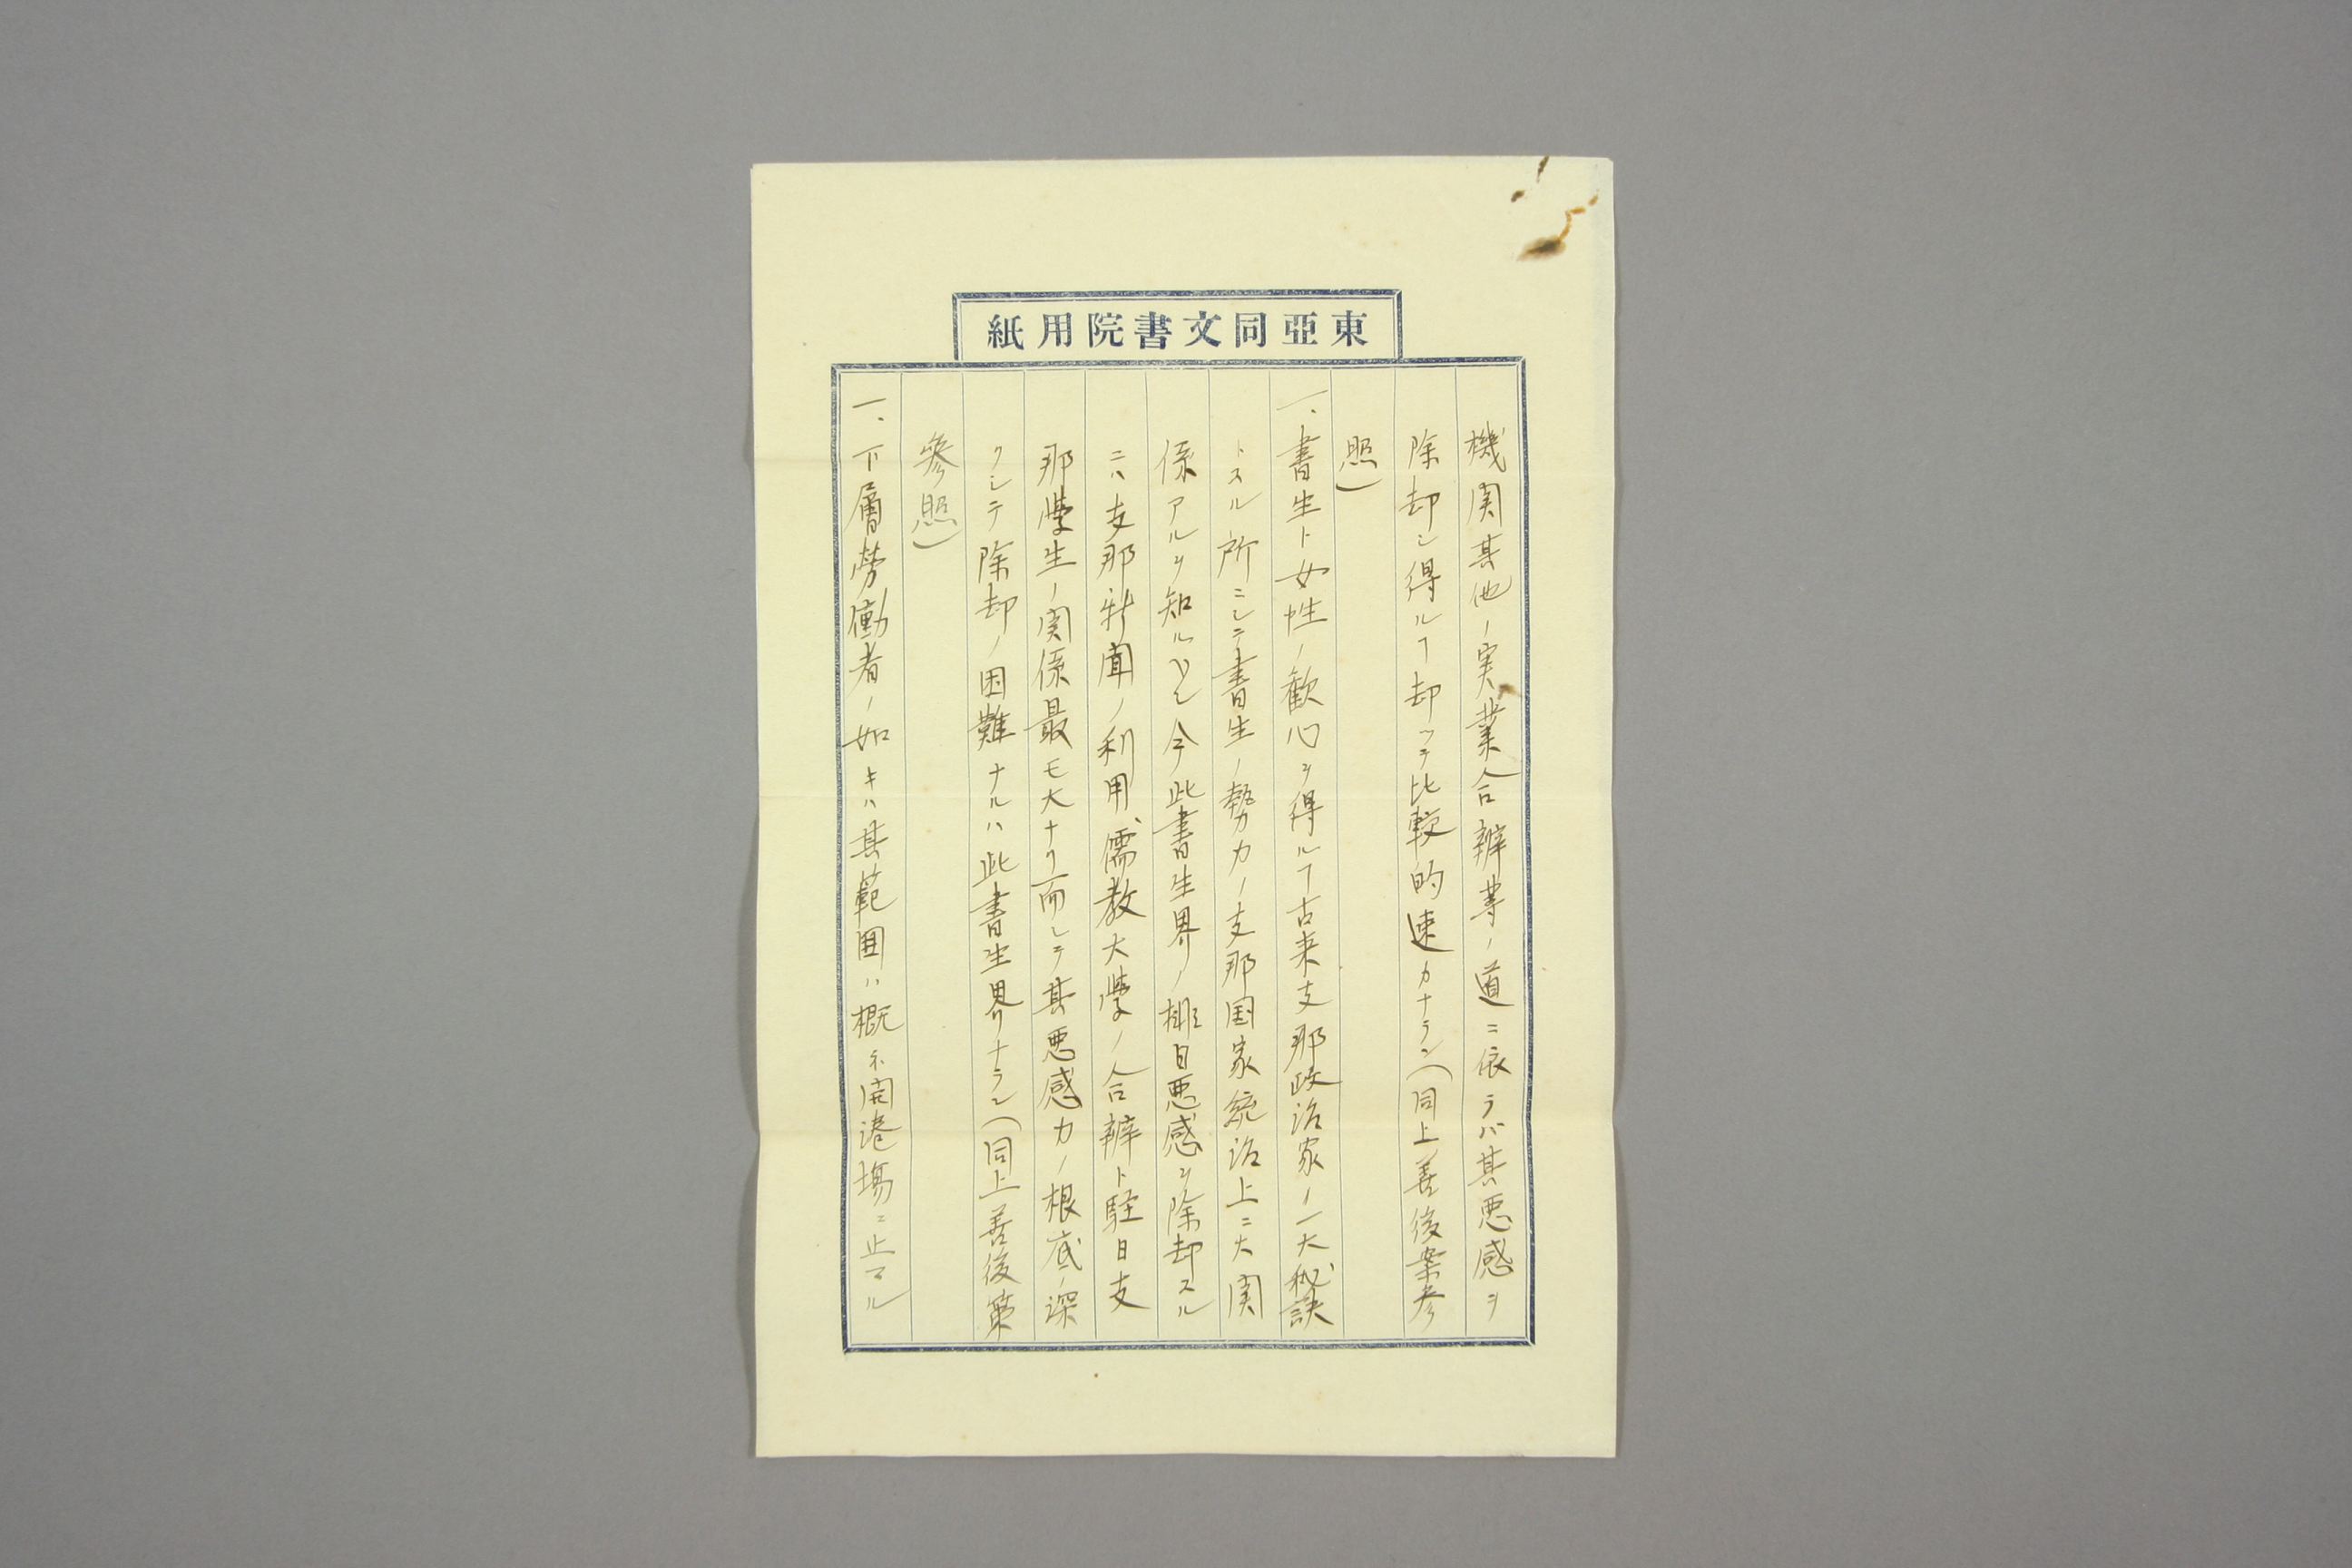 東亞同文書院用紙
機関其他ノ実業合辦等ノ道ニ依ラバ其悪感ヲ
除却シ得ルヿ却ッテ比較的速カナラン(同上善後案参
照)
一、書生ト女性ノ歓心ヲ得ルヿ古来支那政治家ノ一大秘訣
トスル所ニシテ書生ノ勢力ノ支那国家統治上ニ大関
係アルヲ知ルベシ今此書生界ノ排日悪感ヲ除却スル
ニハ支那新聞ノ利用、儒教大學ノ合辦ト駐日支
那學生ノ関係最モ大ナリ而シテ其悪感力ノ根底ノ深
クシテ除却ノ困難ナルハ此書生界ナラン(同上善後策
參照)
一、下層勞働者ノ如キハ其範囲ハ概ネ開港場ニ止マル